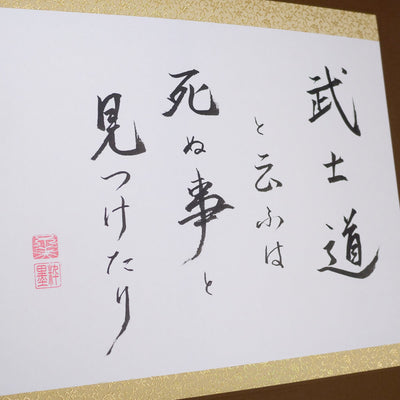 武士道
と云ふは
死ぬ事と
見つけたり